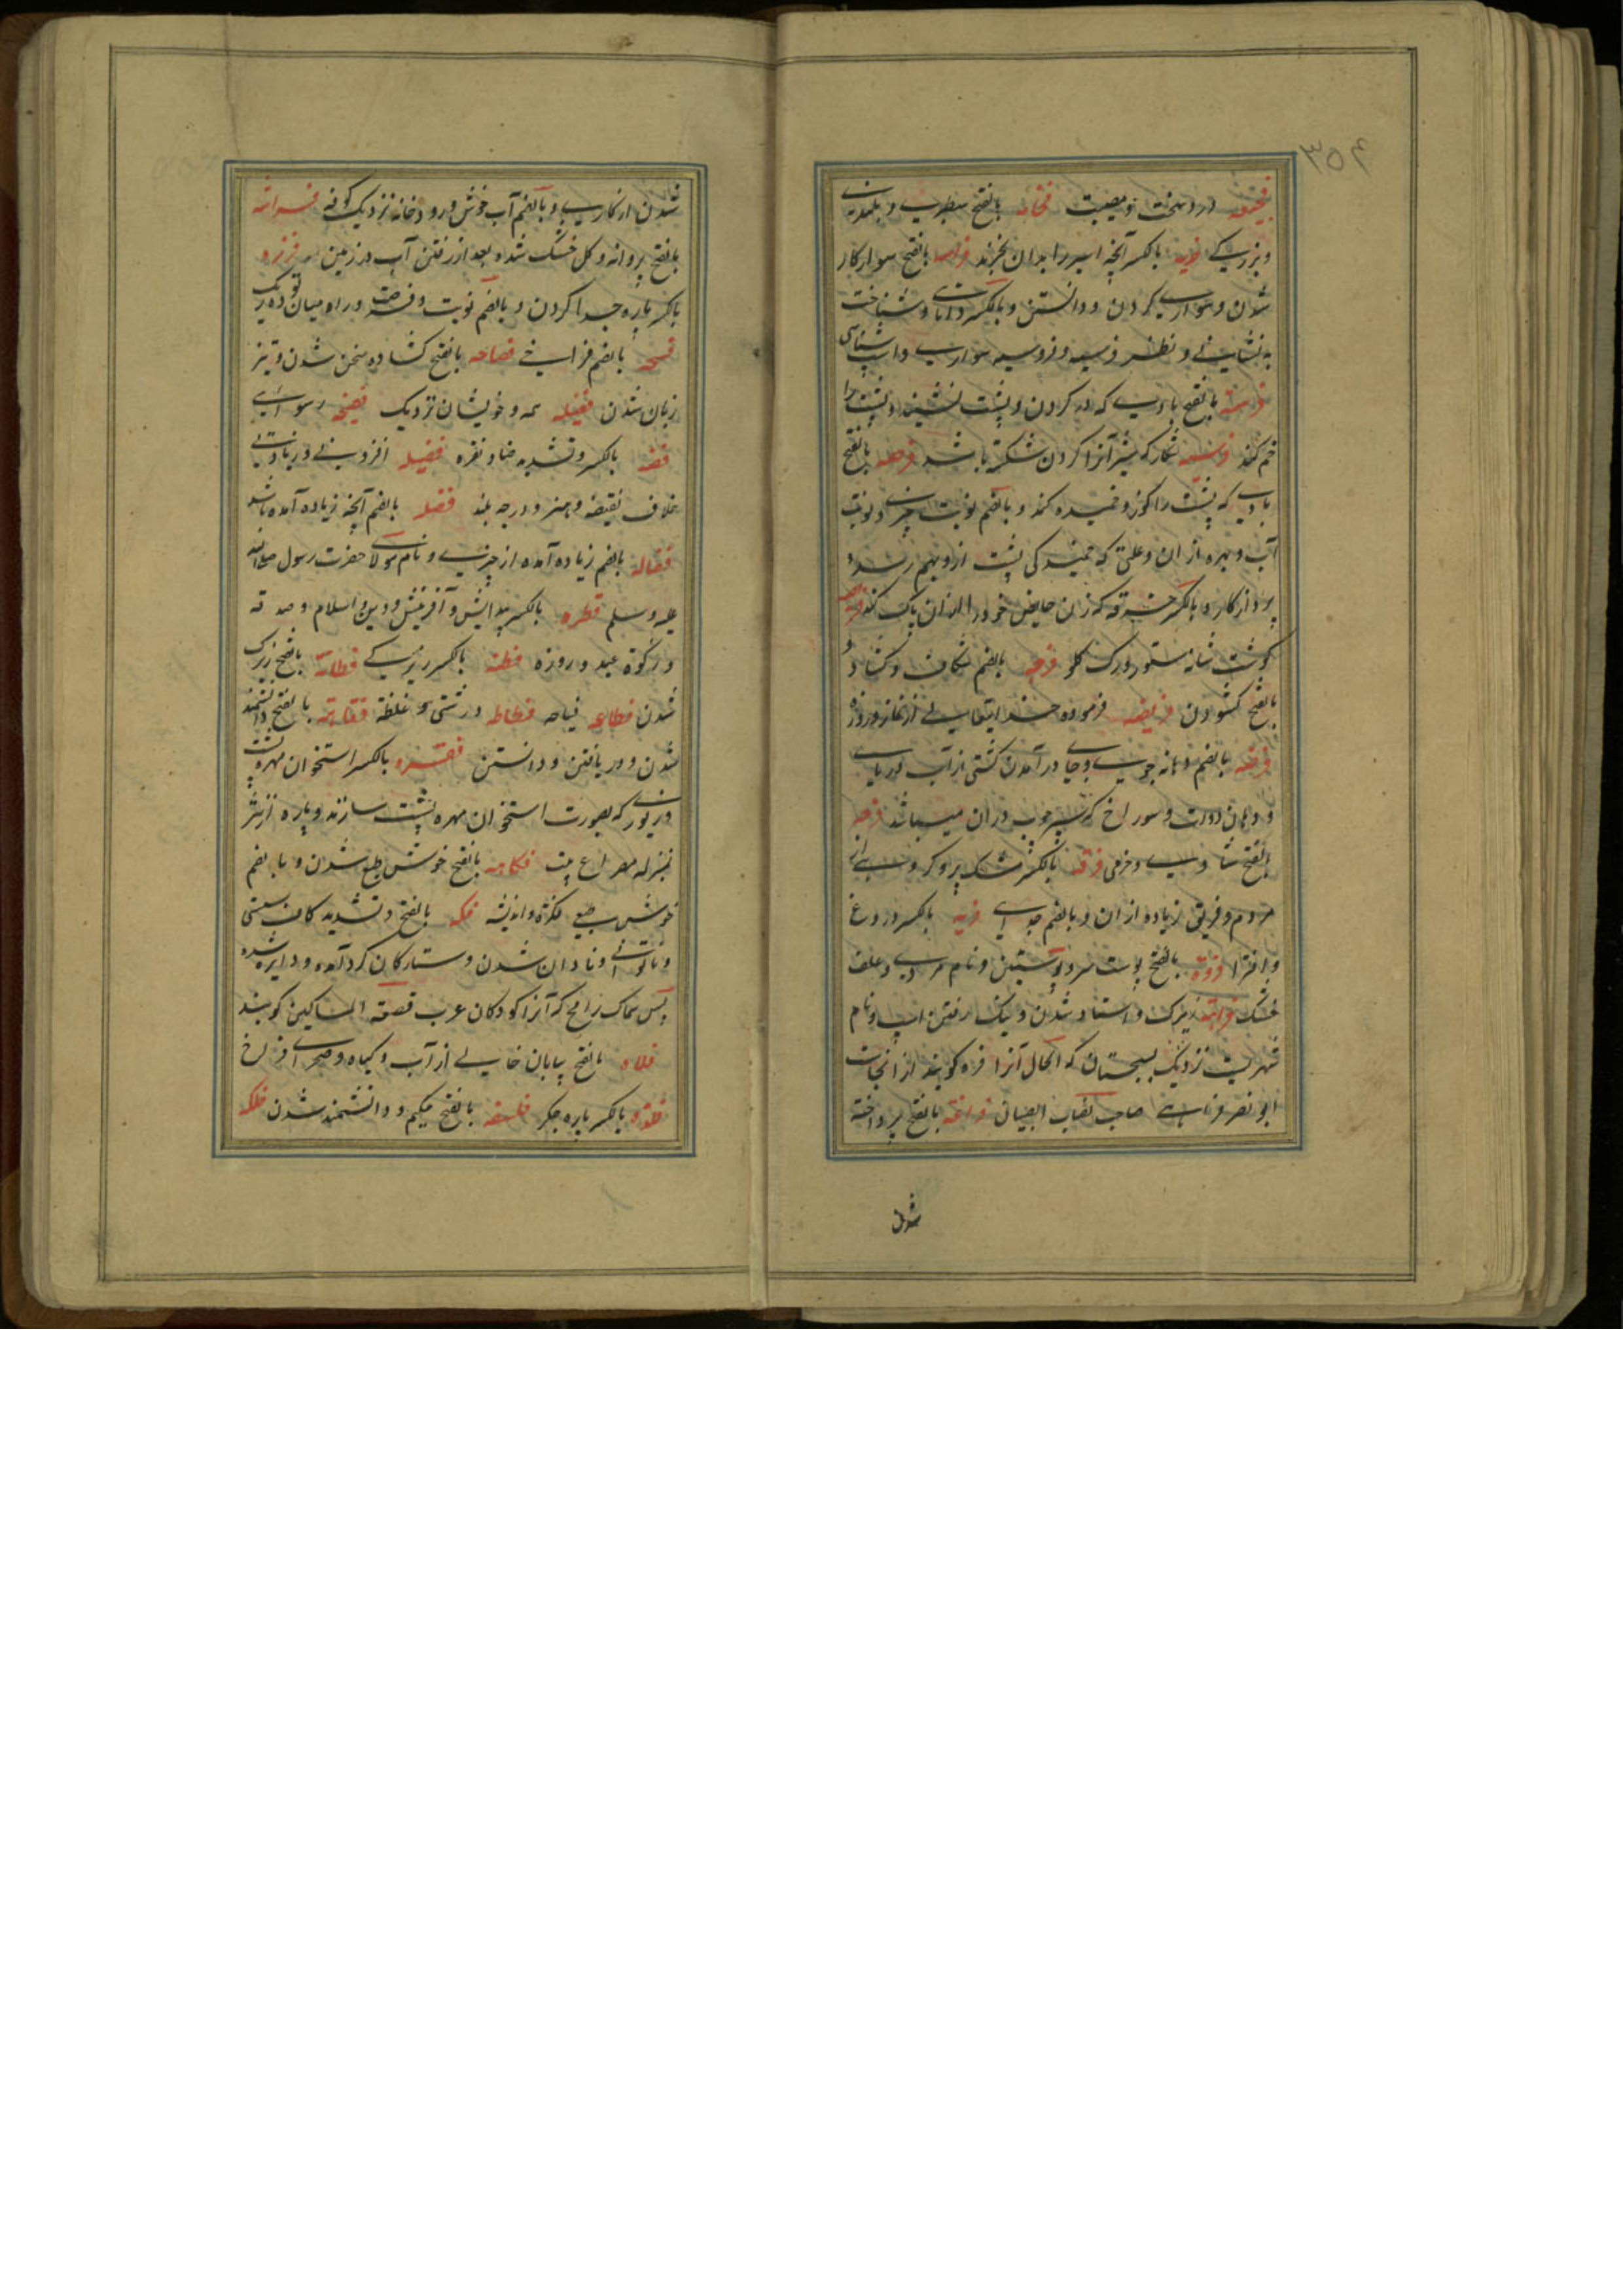 ۳۵۴
فجیعه درد سخت و مصیبت فخامه بالفتح سطبری و بلندی
و بزرگی فدیه بالکسر آنچه اسیر را بدان بخرند فراسه بالفتح سوار کار
شدن و سواری کردن و دانستن و بالکسر دانائی و شناخت
به نشانی و نظر فروسه و فروسیه سواری و اسپ شناسی
فرسة بالفتح بادی که در گردن و پشت نشیند و پشت را
خم کند فریسه شکار که شیر آنرا گردن شکسته باشد فرصه بالفتح
بادی که پشت را کوز و خمیده کند و بالضم نوبت چیزی و نوبت
آب و بهره از ان و علتی که خمیدگی پشت ازو بهم رسد و
پرداز کار و بالکسر خرقه که زنان حایض خود را از ان پاک کنند فریصه
گوشت شانه ستور و رگ گلو فرجه بالضم شکاف و گشاد و
بالفتح گشودن فریضه فرموده خدایتعالی از نماز و روزه
فرضه بالضم دهانه جوی و جای در آمدن کشتی از آب دریای
و دهان دوات و سوراخ که سر چوب دران میباشد فرحه
بالفتح شادی و خرمی فرقه بالکسر مشک پر و گروهی از
مردم و فریق زیاده از ان و بالضم جدائی فریه بالکسر دروغ
و افترا فروة بالفتح پوست سر و پوستین و نام مردی و علف
خشک فراهة زیرک و استاد شدن و نیک رفتن اسپ و نام
شهریست نزدیک بسیستان که الحال آنرا فره گویند از انجاست
ابو نصر فراهی صاحب نصاب الصبیان فراغة بالفتح پرداخته
شدن
شدن از کاری و بالضم آب خوش و رودخانه نزدیک کوفه فراشه
بالفتح پروانه و گل خشک شده بعد از رفتن آب در زمین فرزه
بالکسر پاره جدا کردن و بالضم نوبت و فرصت و راه میان دو توده ریگ
فسحه بالضم فراخی فصاحه بالفتح گشاده سخن شدن و تیز
زبان شدن فصیله همه و خویشان نزدیک فضیحه رسوائی
فضه بالکسر و تشدید ضاد نقره فضیله افزونی و زیادتی
خلاف نقیضه و هنر و درجه بلند فضله بالضم آنچه زیاده آمده باشد
فضاله بالضم زیاده آمده از چیزی و نام مولای حضرت رسول صلی الله
علیه وسلم فطره بالکسر پیدایش و آفرینش و دین و اسلام و صدقه
و زکوة عید و روزه فطنه بالکسر زیرکی فطانة بالفتح زیرک
شدن فظاعه قباحه فظاظه درشتی و غلظة فقاهة بالفتح دانشمند
شدن و دریافتن و دانستن فقره بالکسر استخوان مهره پشت
و زیوری که بصورت استخوان مهره پشت سازند و پاره از نثر
بمنزله مصراع بیت فکاهه بالفتح خوش طبع شدن و بالضم
خوش طبعی فکرة و اندیشه فکه بالفتح و تشدید کاف سستی
و ناتوانی و نادان شدن و ستارگان گرد آمده و دایره شده
پس سماک رامح که آنرا کودکان عرب قصعة المساکین گویند
فلاه بالفتح بیابان خالی از آب و گیاه و صحرای فراخ
فلذه بالکسر پاره جگر فلسفه بالفتح حکیم و دانشمند شدن فلکه